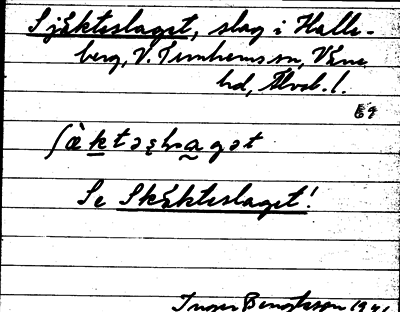 Sjäkteslaget, slag i Halle-
berg, V. Tunhems sn, Väne
hd, Älvsb. l.
Se Skäkteslaget!
Inger Bengtsson 1941